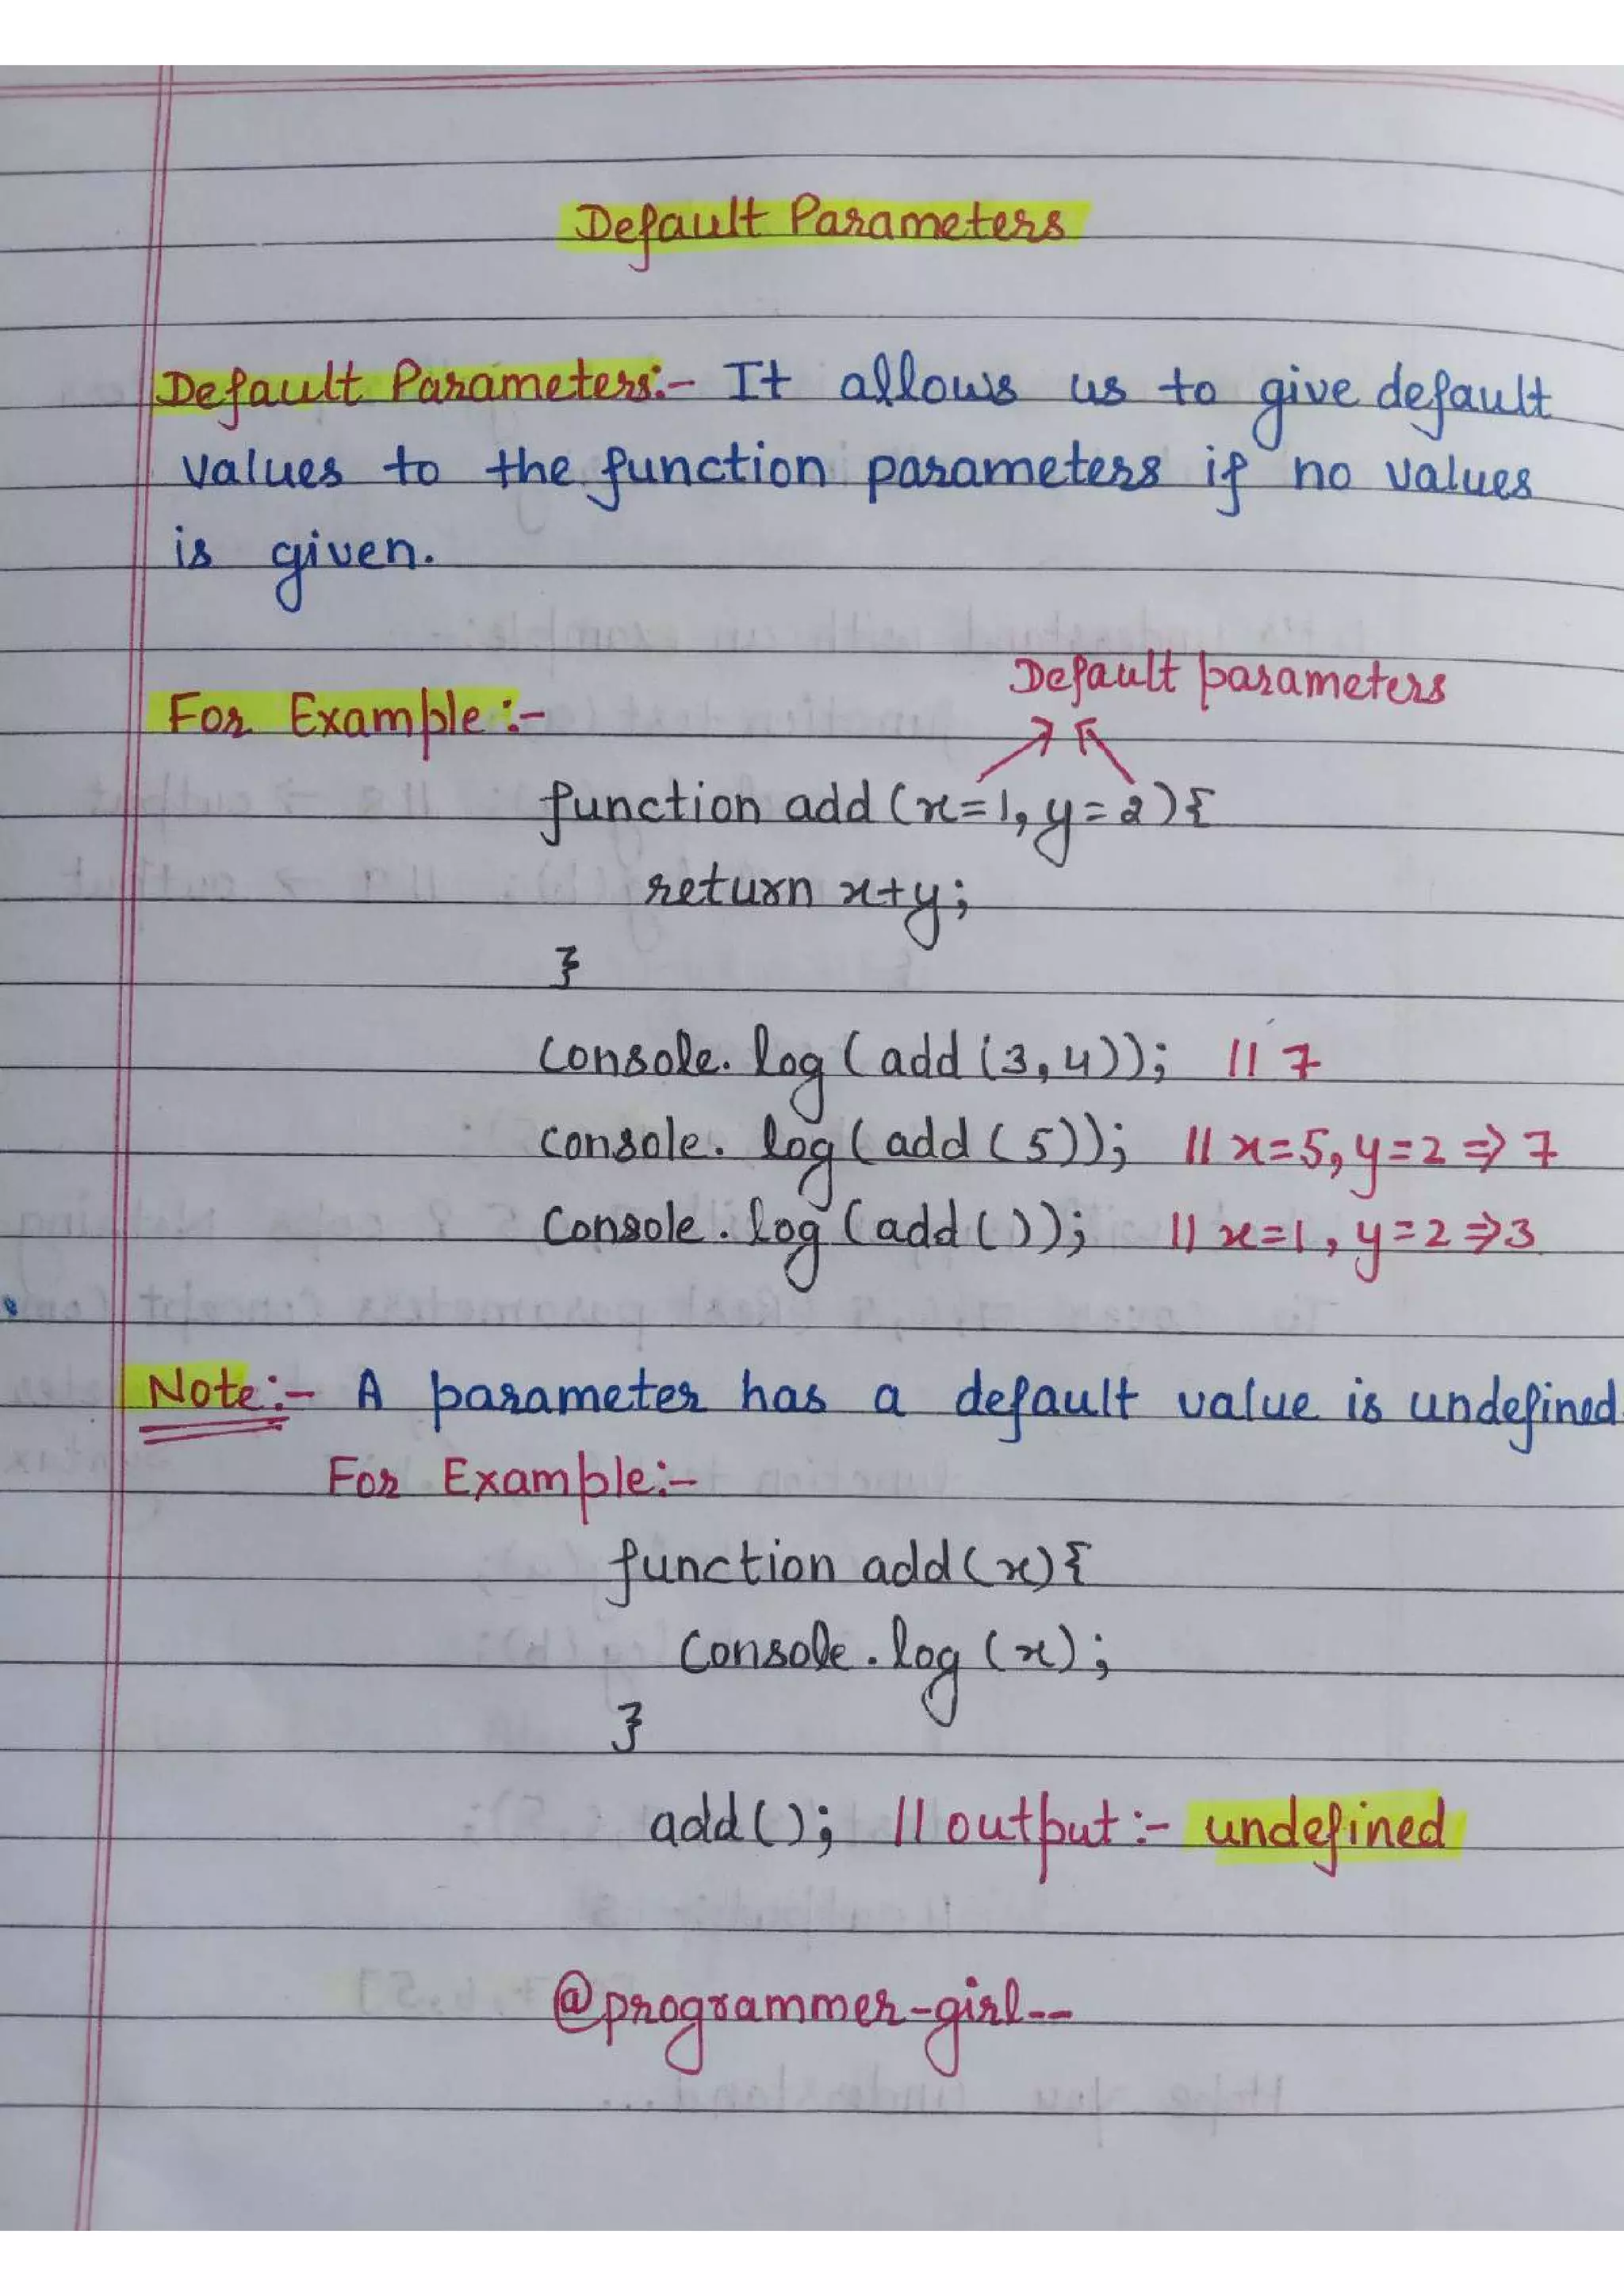 Default Parameters
Default Parameters:- It allows us to give default
values to the function parameters if no values
is given.
Default parameters
For Example :-
function add (x=1, y=2){
return x+y;
}
Console. log ( add (3,4)); // 7
console. log ( add (5)); // x=5, y=2 => 7
Console. log (add ()); // x=1, y=2 => 3
Note:- A parameter has a default value is undefined
For Example:-
function add (x) {
Console.log (x);
}
add (); // output :- undefined
@programmer-girl--